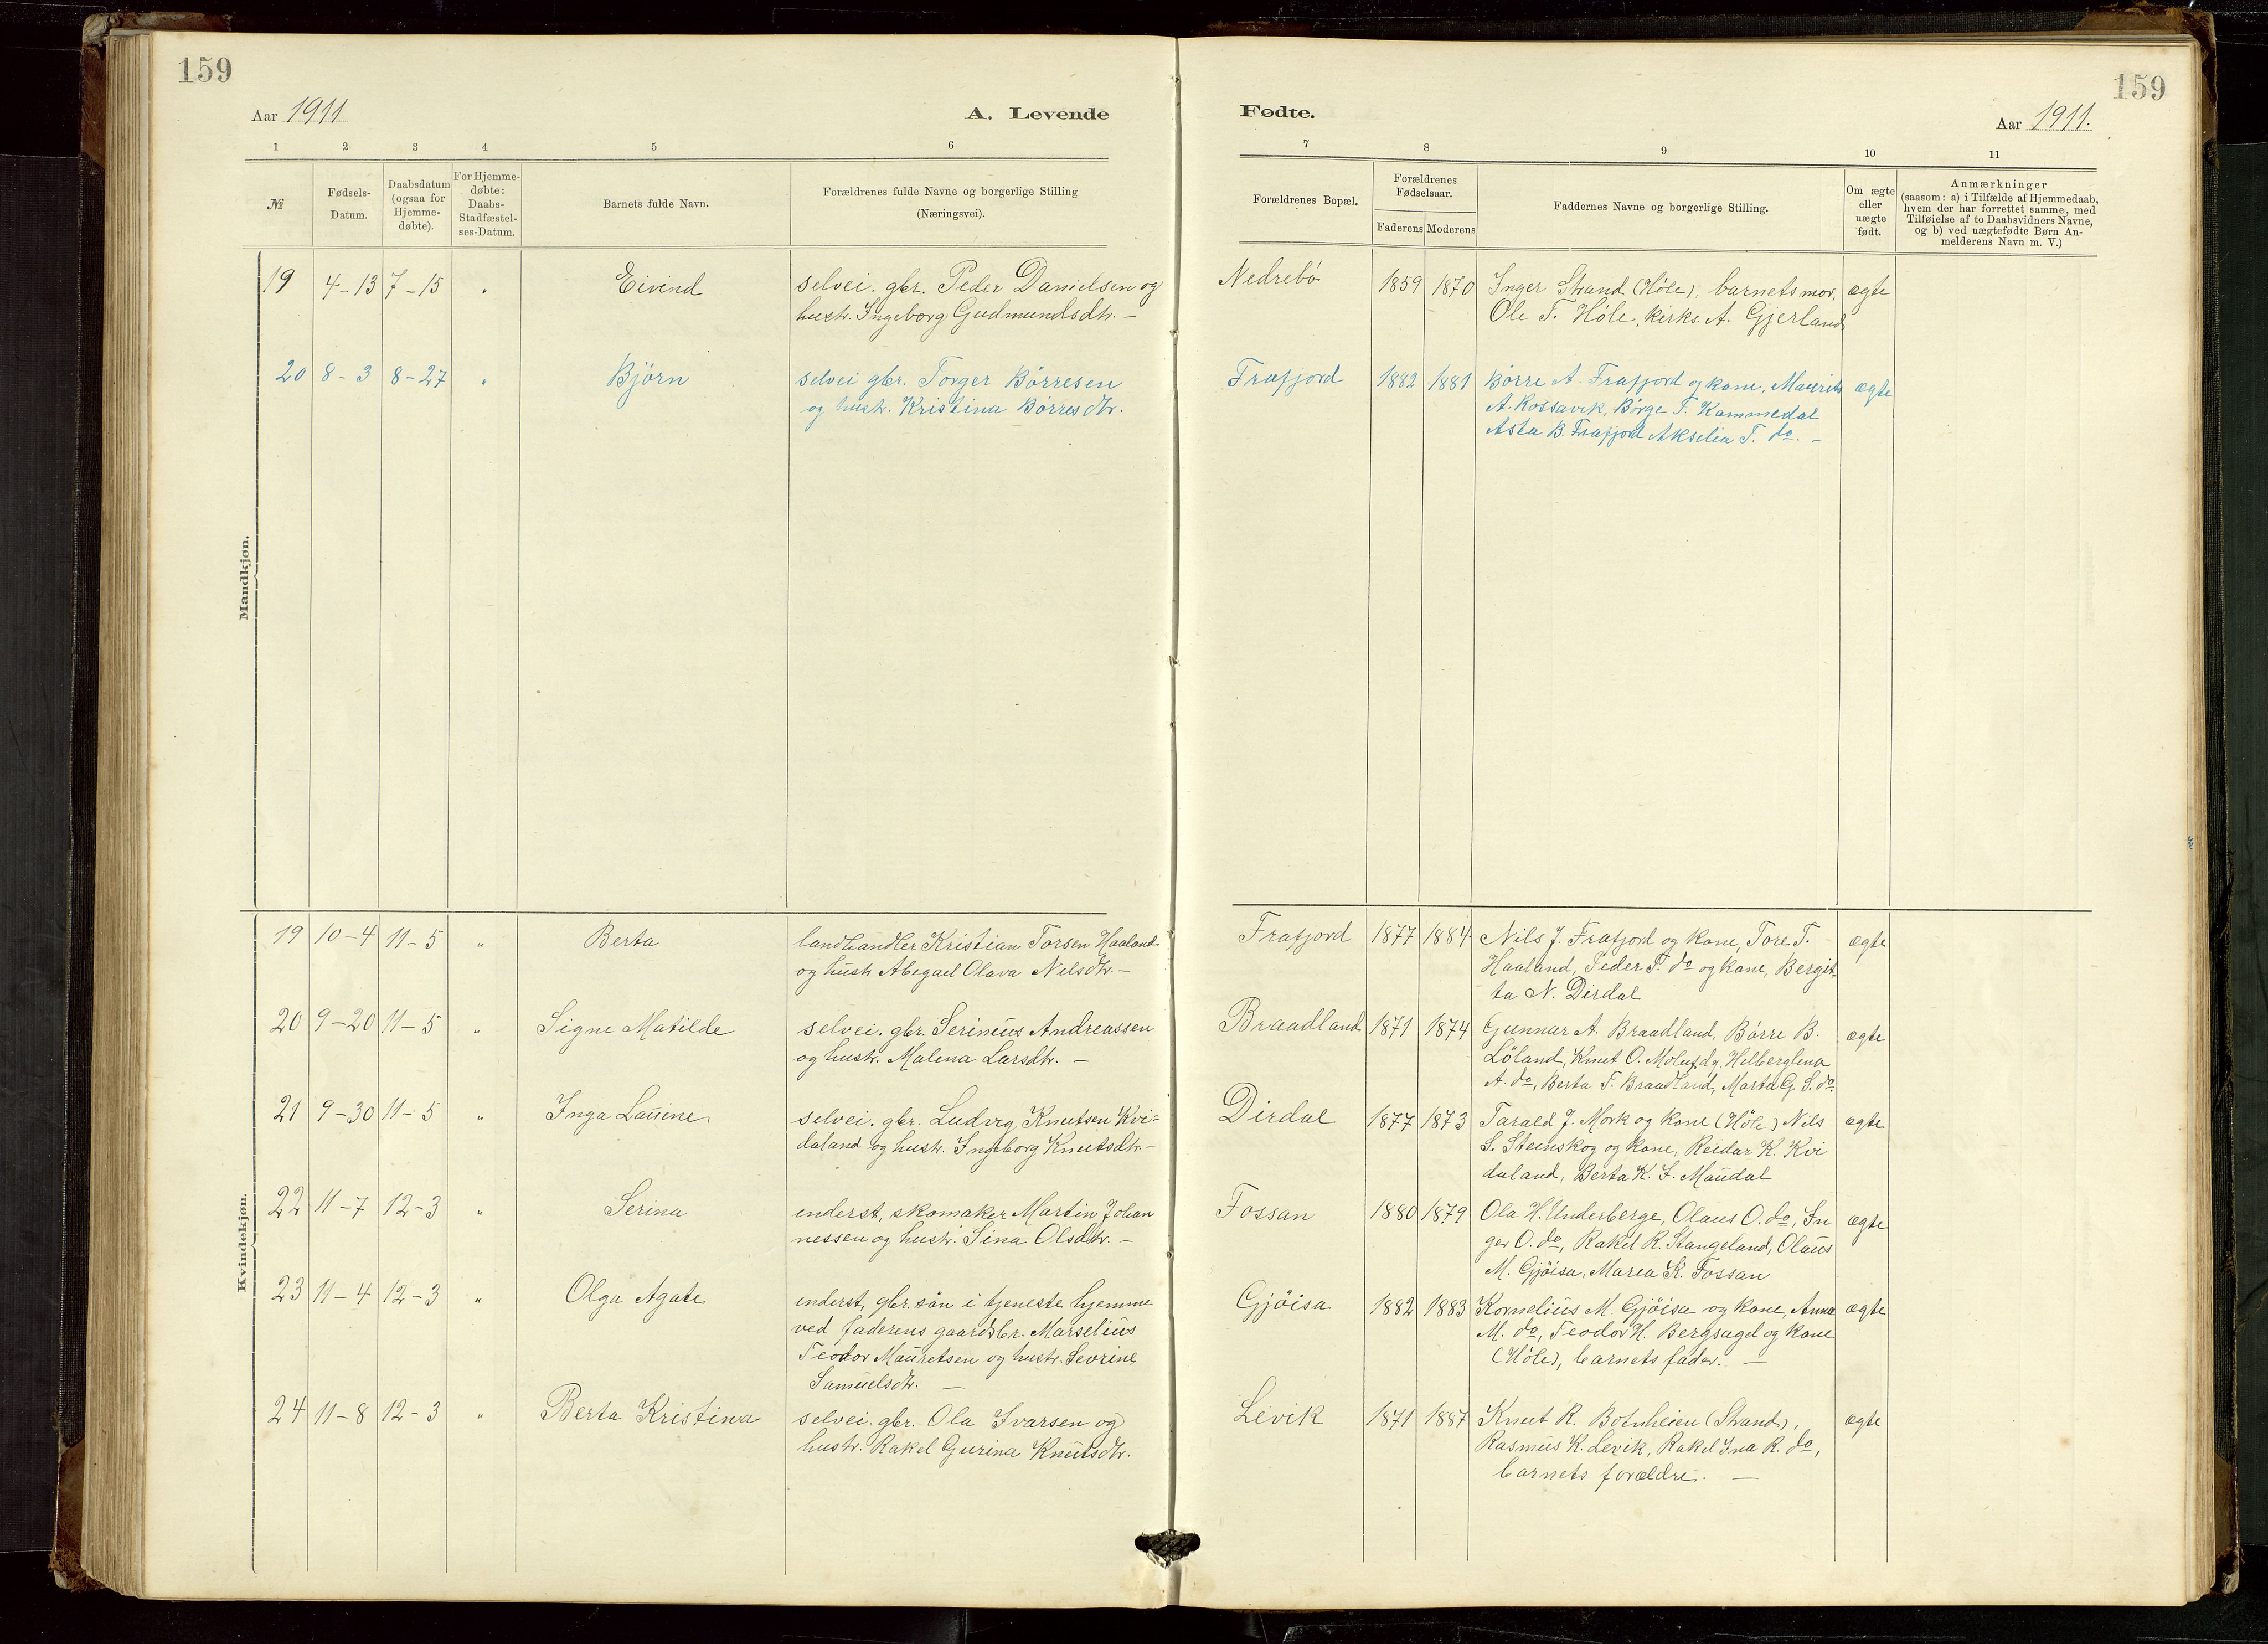 159
159
Aar 1911
A. Levende
Fødte.
Aar 1911.
1 2 3 4 5 6 7 8 9 10 11
№
Fødsels-
Datum.
Daabsdatum
(ogsaa for
Hjemme-
døbte).
For Hjemme-
døbte:
Daabs-
Stadfæstel-
ses-Datum.
Barnets fulde Navn.
Forældrenes fulde Navne og borgerlige Stilling
(Næringsvei).
Forældrenes Bopæl.
Forældrenes
Fødselsaar.
Faderens Moderens
Faddernes Navne og borgerlige Stilling.
Om ægte
eller
uægte
født.
Anmærkninger
(saasom: a) i Tilfælde af Hjemmedaab,
hvem der har forrettet samme, med
Tilføielse af to Daabsvidners Navne,
og b) ved uægtefødte Børn An-
melderens Navn m. V.)
Mandkjøn.
19 4-13 7-15 " Eivind
selvei. gbr. Peder Danielsen og
hustr. Ingeborg Gudmundsdtr. -
Nedrebö 1859 1870
Inger Strand (Höle), barnets mor,
Ole T. Höle, kirks. A. Gjerland
ægte
20 8-3 8-27 " Björn
selvei gbr. Torger Börresen
og hustr. Kristina Börresdtr.
Frafjord 1882 1881
Börre A. Frafjord og kone, Maurits
A. Rossavik, Börge T. Kommedal
Asta B. Frafjord Akselia T. do. -
ægte
Kvindekjøn.
19 10-4 11-5 " Berta
landhandler Kristian Torsen Haaland
og hustr Abegael Olava Nilsdtr. -
Frafjord 1877 1884
Nils J. Frafjord og kone, Tore T.
Haaland, Peder T. do og kone, Bergit-
ta N. Dirdal
ægte
20 9-20 11-5 " Signe Matilde
selvei. gbr. Serinius Andreassen
og hustr. Malena Larsdtr. -
Braadland 1871 1874
Gunnar A. Braadland, Börre B.
Löland, Knut O. Helberglena
A. do, Berta T. Braadland, Marta G. S. do.
ægte
21 9-30 11-5 " Inga Lauine
selvei. gbr. Ludvig Knutsen Kvi=
daland og hustr. Ingeborg Knutsdtr. -
Dirdal 1877 1873
Tarald J. Mork og kone (Höle) Nils
S. Steinskog og kone, Reidar K. Kvi
daland, Berta K. J. Maudal
ægte
22 11-7 12-3 " Serina
enderst, skomaker Martin Johan
nessen og hustr. Sina Olsdtr. -
Fossan 1880 1879
Ola H. Underberge, Olaus O. do, In
ger O. do, Rakel R. Stangeland, Olaus
M. Gjöisa, Marea K. Fossan
ægte
23 11-4 12-3 " Olga Agate
enderst, gbr. sön i tjeneste hjemme
ved faderens gaardsbr. Marselius
Teodor Mauretsen og hustr. Sevrine
Samuelsdtr. -
Gjöisa 1882 1883
Kornelius M. Gjöisa og kone, Anna
M. do, Teodor H. Bergsagel og kone
(Höle), barnets fader. -
ægte
24 11-8 12-3 " Berta Kristina
selvei. gbr. Ola Ivarsen og
hustr. Rakel Gurina Knutsdtr.
Levik 1871 1887
Knut R. Botnheien (Strand),
Rasmus K. Levik, Rakel Ina R. do,
barnets forældre. -
ægte